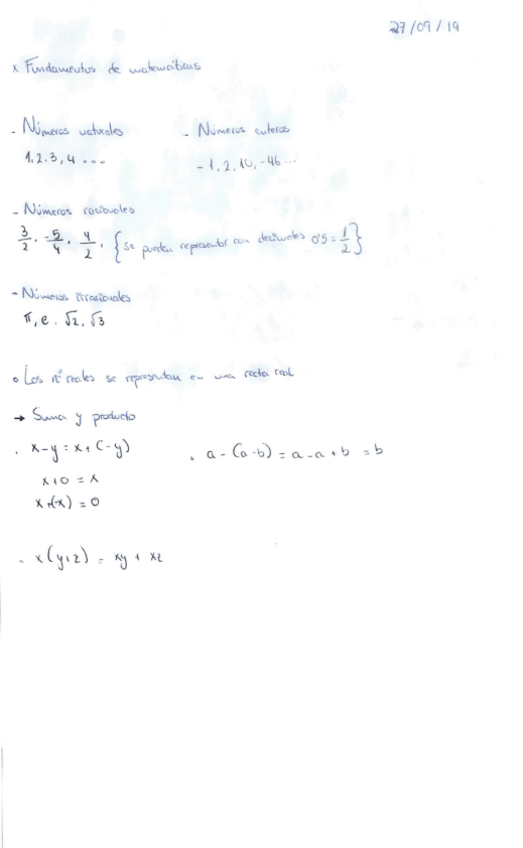 27/09/19
x Fundamentos de matemáticas
- Números naturales
1, 2, 3, 4 ...
- Números enteros
-1, 2, 10, -46 ...
- Números racionales
3/2, -5/4, 4/2, {se pueden representar con decimales 0'5 = 1/2}
- Números irracionales
π, e, √2, √3
o Los nº reales se representan en una recta real
→ Suma y producto
. x-y = x+(-y)
x+0 = x
x+(-x) = 0
. a-(a-b) = a-a+b = b
. x(y+z) = xy + xz